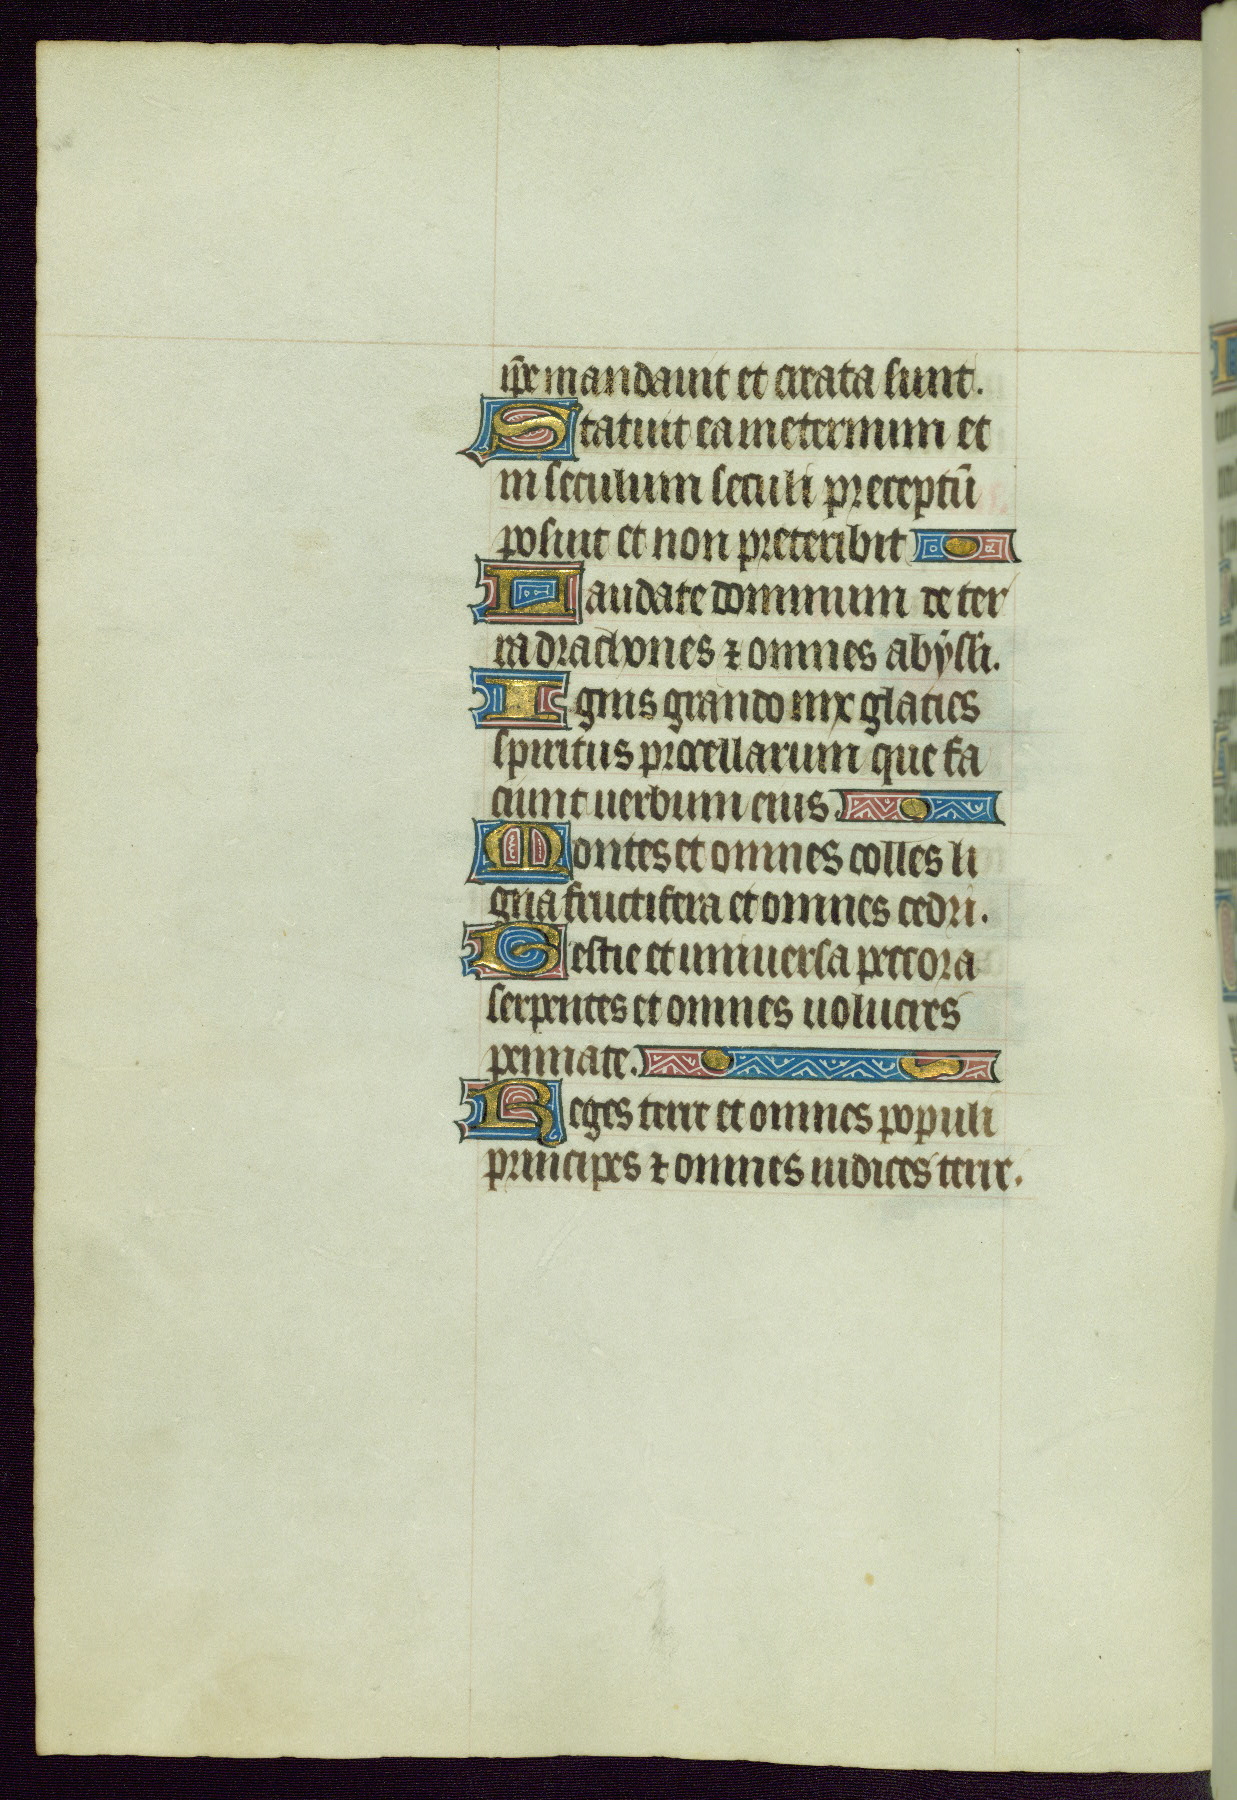 ip̄e mandauit et creata sunt.
Statuit ea in eternum et
in seculum seculi preceptū
posuit et non preteribit
Laudate dominum de ter
ra drachones ⁊ omnes abyssi.
Ignis grando nix glacies
spiritus procellarum que fa
ciunt uerbum eius.
Montes et omnes colles li
gna fructifera et omnes cedri.
Bestie et uniuersa peccora
serpentes et omnes uolucres
pennate.
Reges terre et omnes populi
principes ⁊ omnes iudices terre.